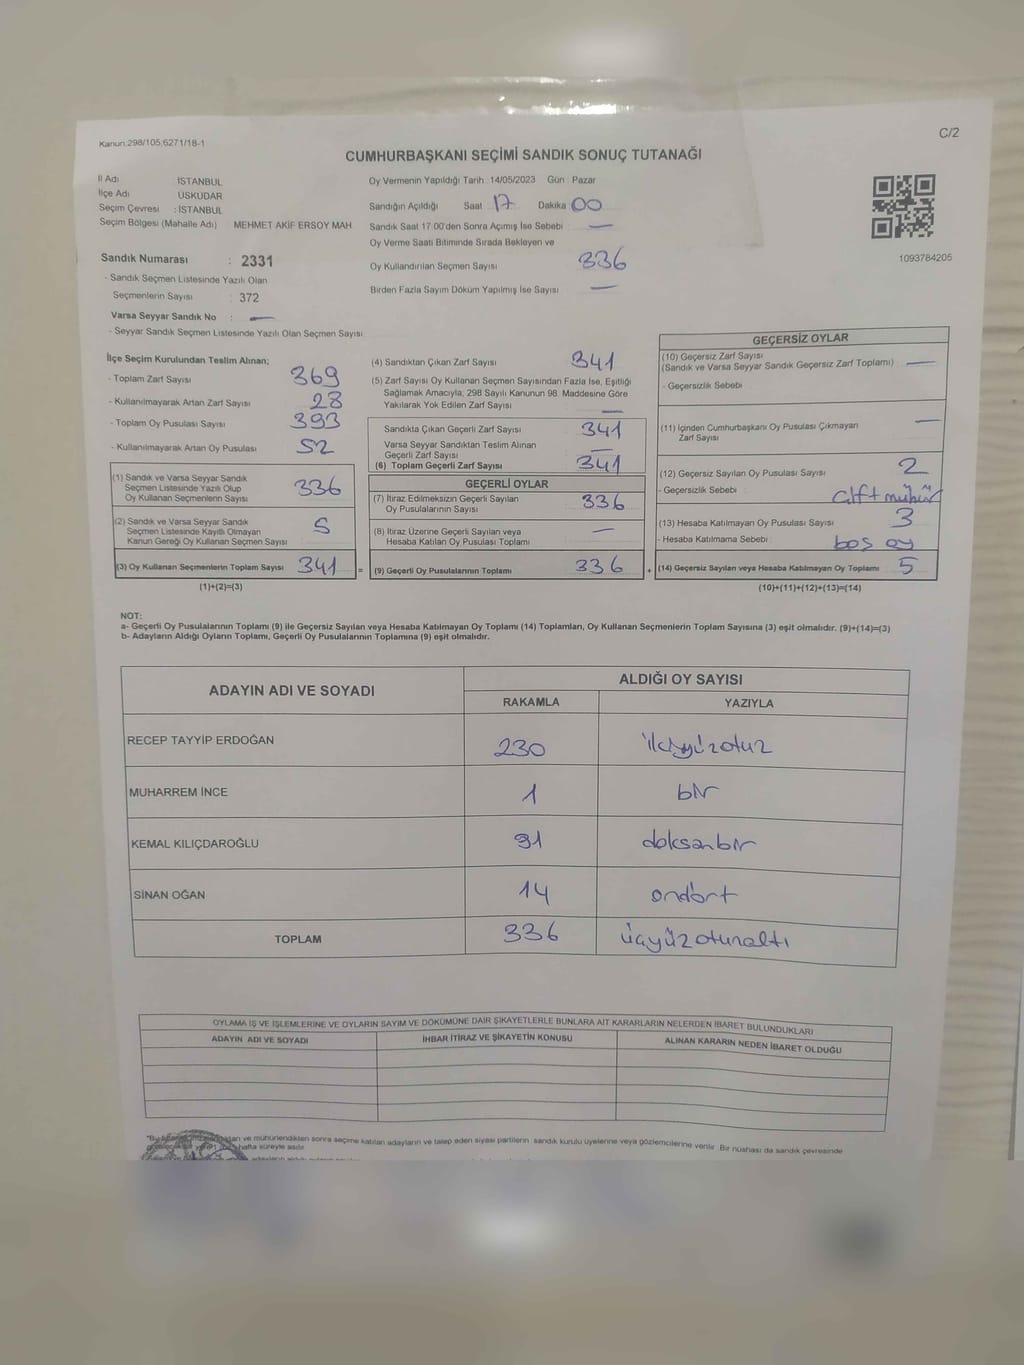 Kanun:298/105,6271/18-1
C/2
CUMHURBAŞKANI SEÇİMİ SANDIK SONUÇ TUTANAĞI
İl Adı İSTANBUL
İlçe Adı ÜSKÜDAR
Seçim Çevresi : İSTANBUL
Seçim Bölgesi (Mahalle Adı) MEHMET AKİF ERSOY MAH
Sandık Numarası : 2331
- Sandık Seçmen Listesinde Yazılı Olan
Seçmenlerin Sayısı : 372
Varsa Seyyar Sandık No : —
- Seyyar Sandık Seçmen Listesinde Yazılı Olan Seçmen Sayısı
Oy Vermenin Yapıldığı Tarih :14/05/2023 Gün : Pazar
Sandığın Açıldığı Saat 17 Dakika 00
Sandık Saat 17:00'den Sonra Açımış İse Sebebi : —
Oy Verme Saati Bitiminde Sırada Bekleyen ve
Oy Kullandırılan Seçmen Sayısı 336
Birden Fazla Sayım Döküm Yapılmış İse Sayısı —
1093784205
İlçe Seçim Kurulundan Teslim Alınan;
- Toplam Zarf Sayısı 369
- Kullanılmayarak Artan Zarf Sayısı 28
- Toplam Oy Pusulası Sayısı 393
- Kullanılmayarak Artan Oy Pusulası 52
(1) Sandık ve Varsa Seyyar Sandık
Seçmen Listesinde Yazılı Olup
Oy Kullanan Seçmenlerin Sayısı 336
(2) Sandık ve Varsa Seyyar Sandık
Seçmen Listesinde Kayıtlı Olmayan
Kanun Gereği Oy Kullanan Seçmen Sayısı 5
(3) Oy Kullanan Seçmenlerin Toplam Sayısı 341 =
(1)+(2)=(3)
(4) Sandıktan Çıkan Zarf Sayısı 341
(5) Zarf Sayısı Oy Kullanan Seçmen Sayısından Fazla İse, Eşitliği
Sağlamak Amacıyla; 298 Sayılı Kanunun 98. Maddesine Göre
Yakılarak Yok Edilen Zarf Sayısı —
Sandıkta Çıkan Geçerli Zarf Sayısı 341
Varsa Seyyar Sandıktan Teslim Alınan
Geçerli Zarf Sayısı —
(6) Toplam Geçerli Zarf Sayısı 341
GEÇERLİ OYLAR
(7) İtiraz Edilmeksizin Geçerli Sayılan
Oy Pusulalarının Sayısı 336
(8) İtiraz Üzerine Geçerli Sayılan veya
Hesaba Katılan Oy Pusulası Toplamı —
(9) Geçerli Oy Pusulalarının Toplamı 336 +
GEÇERSİZ OYLAR
(10) Geçersiz Zarf Sayısı
(Sandık ve Varsa Seyyar Sandık Geçersiz Zarf Toplamı) —
- Geçersizlik Sebebi
(11) İçinden Cumhurbaşkanı Oy Pusulası Çıkmayan
Zarf Sayısı —
(12) Geçersiz Sayılan Oy Pusulası Sayısı 2
- Geçersizlik Sebebi : çift mühür
(13) Hesaba Katılmayan Oy Pusulası Sayısı 3
- Hesaba Katılmama Sebebi : boş oy
(14) Geçersiz Sayılan veya Hesaba Katılmayan Oy Toplamı 5
(10)+(11)+(12)+(13)=(14)
NOT:
a- Geçerli Oy Pusulalarının Toplamı (9) ile Geçersiz Sayılan veya Hesaba Katılmayan Oy Toplamı (14) Toplamları, Oy Kullanan Seçmenlerin Toplam Sayısına (3) eşit olmalıdır. (9)+(14)=(3)
b- Adayların Aldığı Oyların Toplamı, Geçerli Oy Pusulalarının Toplamına (9) eşit olmalıdır.
ADAYIN ADI VE SOYADI ALDIĞI OY SAYISI
RAKAMLA YAZIYLA
RECEP TAYYİP ERDOĞAN 230 ikiyüzotuz
MUHARREM İNCE 1 bir
KEMAL KILIÇDAROĞLU 91 doksanbir
SİNAN OĞAN 14 ondört
TOPLAM 336 üçyüzotuzaltı
OYLAMA İŞ VE İŞLEMLERİNE VE OYLARIN SAYIM VE DÖKÜMÜNE DAİR ŞİKAYETLERLE BUNLARA AİT KARARLARIN NELERDEN İBARET BULUNDUKLARI
ADAYIN ADI VE SOYADI İHBAR İTİRAZ VE ŞİKAYETİN KONUSU ALINAN KARARIN NEDEN İBARET OLDUĞU
ve mühürlendikten sonra seçime katılan adayların ve talep eden siyasi partilerin sandık kurulu üyelerine veya gözlemcilerine verilir. Bir nüshası da sandık çevresinde
hafta süreyle asılır.